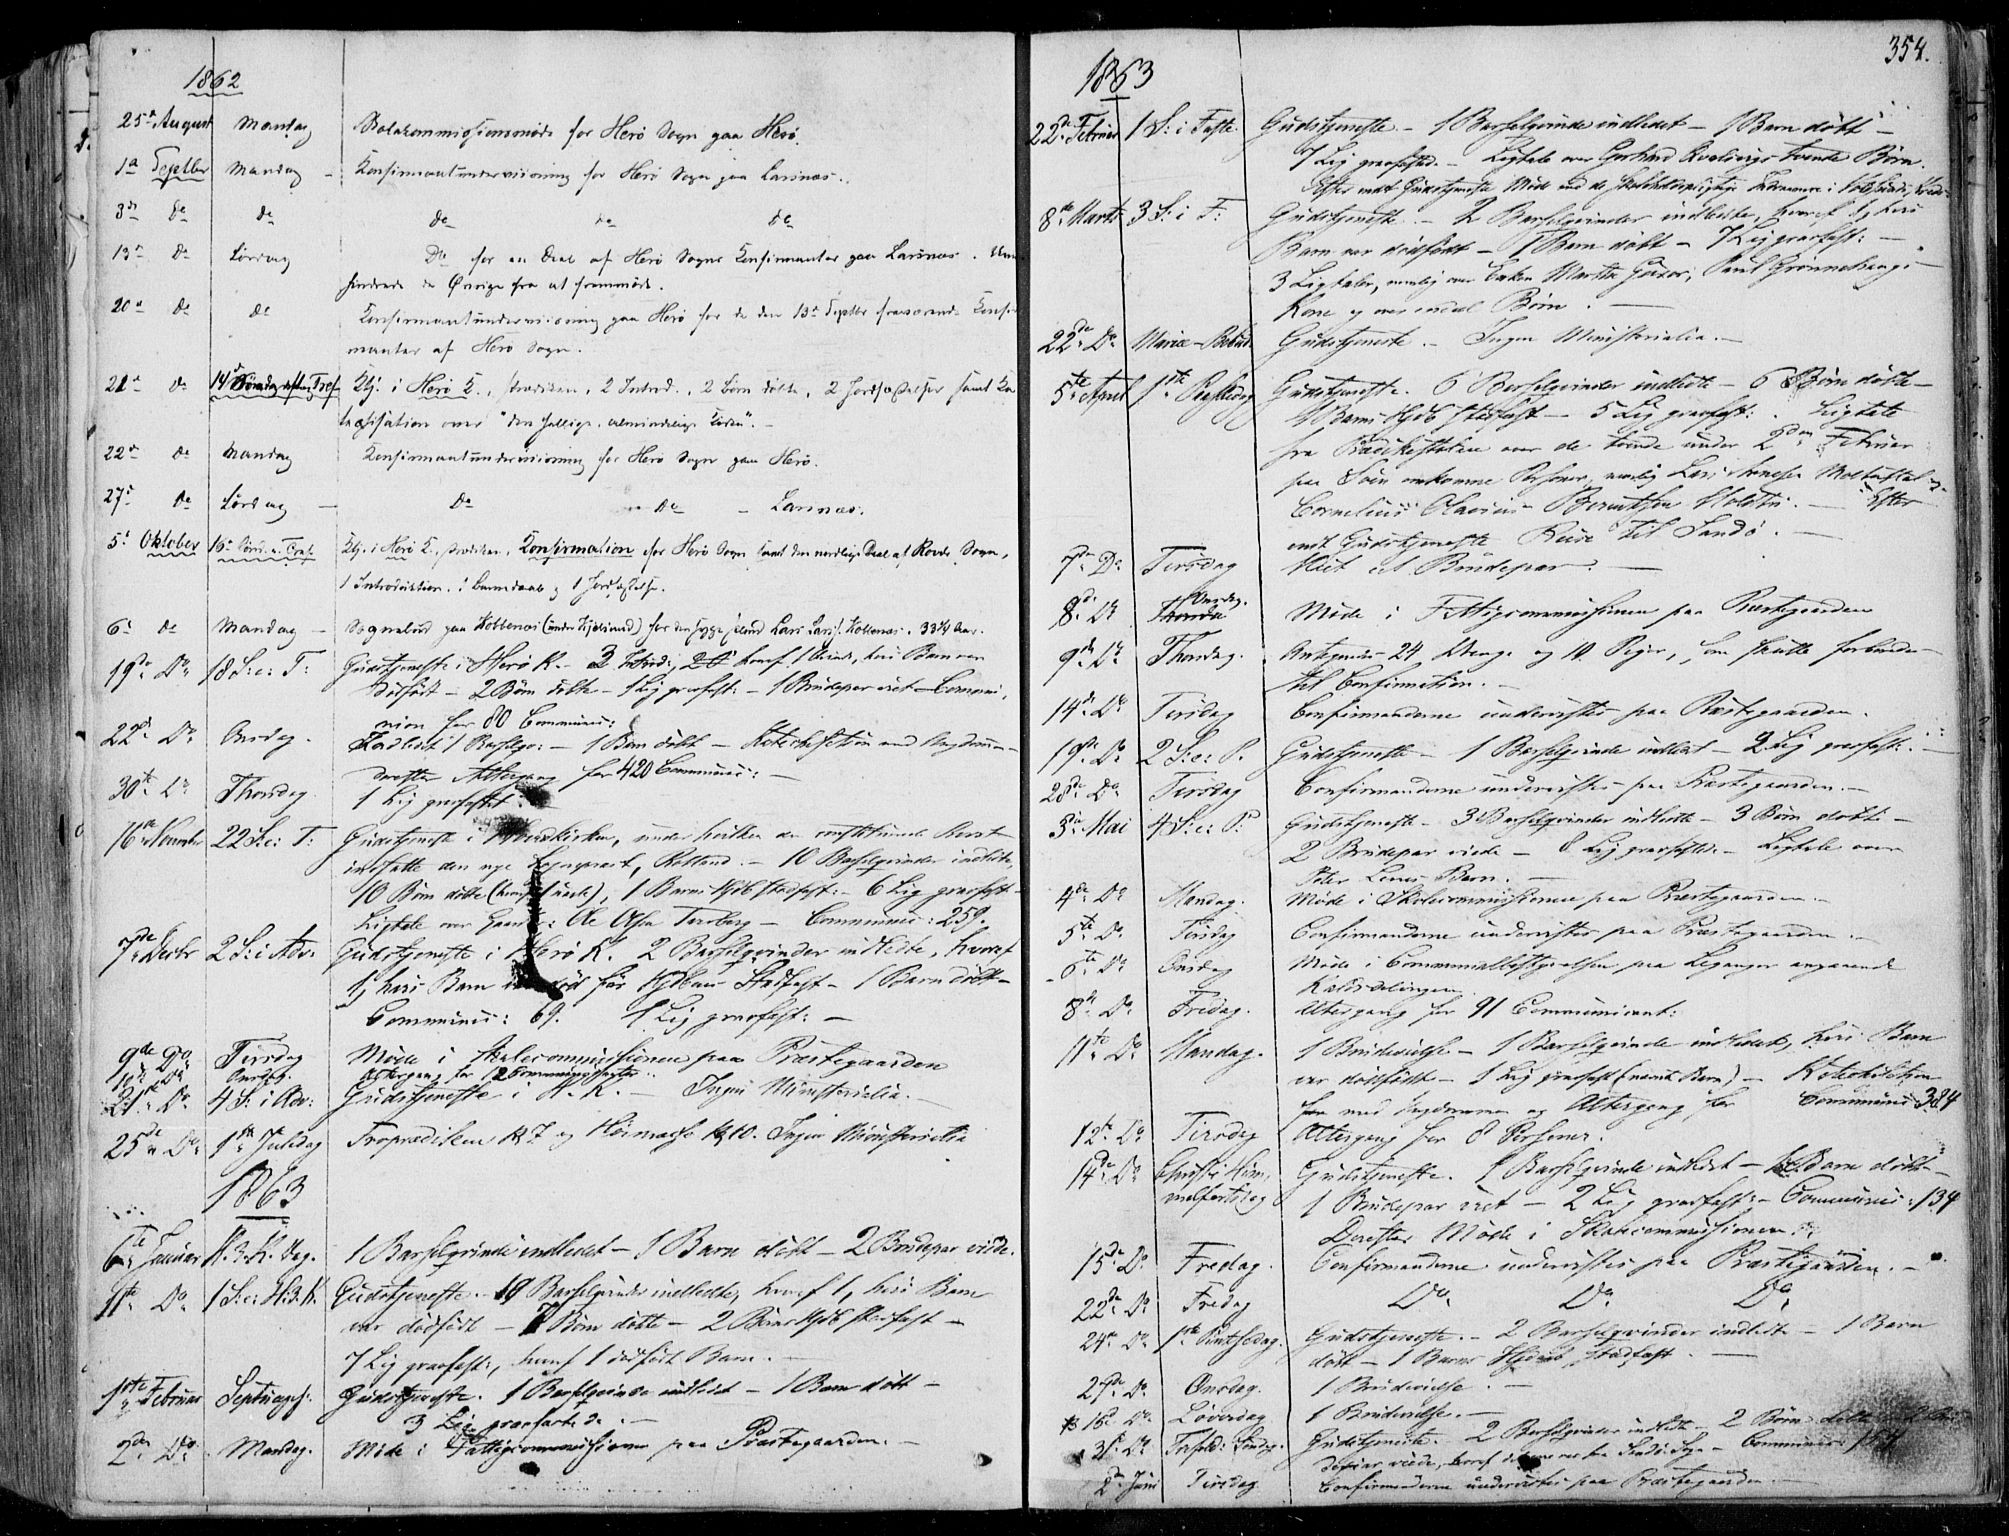 1862
25de August Mandag Skolekommissionsmøde for Herø Sogn paa Herø.
1ste Septbr Mandag Konfirmantundervisning for Herø Sogn paa Larsnæs.
3de do do do do do
13de do Lørdag Do for en Deel af Herø Sogns Konfirmanter paa Larsnæs.
hindrede de Øvrige fra at fremmøde.
20de do do Konfirmantundervisning paa Herø for de den 13de Septbr fraværende Konfir-
manter af Herø Sogn.
21de do 14de Søndag efter Tref. Gtj. i Herø K., Prædiken, 2 Introd., 2 Børn døbte, 2 Jordfæstelser samt Ka-
techisation over "den hellige, almindelige Kirke".
22de do Mandag Konfirmantundervisning for Herø Sogn paa Herø.
27de do Lørdag Do Do Larsnæs.
5te Oktober 16de Sønd. e. Tref. Gtj. i Herø K., Prædiken, Konfirmation for Herø Sogn samt den nordlige Deel af Rovde Sogn,
1 Introduktion, 1 Barnedaab og 1 Jordfæstelse.
6te do Mandag Sognebud paa Koldenæs for den syge Lars Larss. Koldenæs. 33¼ Aar.
19de Do 18 S: e: T: Gudstjeneste i Herø K. - 3 Introd:, hvoraf 1 Qvinde, hvis Barn var
dødfødt - 2 Børn døbte - 1 Lig graafæst: - 1 Brudepar viet - Commu-
nion for 80 Communic:
22de Do Onsdag. Indledt 1 Barselqv: - 1 Barn døbt - Katechisation med Ungdommen -
derefter Altergang for 420 Communic: -
30te Do Thorsdag 1 Lig graafæstet.
16de November 22 S: e: T: Gudstjeneste i Hovedkirken, under hvilken den constituerede Provst
indsatte den nye Sognepræst, Rolland. - 10 Barselqvinder indledte,
10 Børn døbte (hvoraf 1 uægte), 1 Barns Hjdb stadfæst: - 6 Lig graafæst -
Ligtale over Gaardm: Ole Olsen - Communic: 259.
7de Decbr 2 S: i Adv: Gudstjeneste i Herø K. 2 Barselqvinder indledte, hvoraf
1, hvis Barn var død før Hjdbens Stadfæst - 1 Barn døbt -
Communic: 69. 1 Lig graafæst: -
9de Do Tirsdag Møde i Skolecommissionen paa Præstegaarden
10de Do Onsdag. Altergang for 12 Communicanter.
21de Do 4 S: i Adv: Gudstjeneste i H. K. - Ingen Ministerialia. -
25de Do 1ste Juledag Froprædiken Kl 7 og Høimesse Kl 10. Ingen Ministerialia
1863
6te Januar H. 3. K. Dag. 1 Barselqvinde indledet - 1 Barn døbt - 2 Brudepar viede.
11te Do 1 S: e: H. 3. K. Gudstjeneste. - 19 Barselqvinder indledte, hvoraf 1, hvis Barn
var dødfødt - 7 Børn døbte - 2 Børns Hjdb stadfæst -
7 Lig graafæst:, hvoraf 1 dødfødt Barn. -
1ste Februar Septuages: Gudstjeneste. 1 Barselqvinde indledet - 1 Barn døbt -
3 Lig graafæstede. -
2den Do Mandag. Møde i Fattigcommissionen paa Præstegaarden. -
354.
1863
22de Februar 1 S: i Faste. Gudstjeneste - 1 Barselqvinde indledet - 1 Barn døbt -
7 Lig graafæstede - Ligtale over Gerhard tvende Børn.
Efter endt Gudstjeneste Møde med de
8de Marts 3 S: i F: Gudstjeneste - 2 Barselqvinder indledte, hvoraf 1, hvis
Barn var dødfødt - 1 Barn døbt - 7 Lig graafæst: -
3 Ligtaler, nemlig over Enken Martha Paul
Kone og over endeel Børn. -
22de Do Mariæ-Bebud. Gudstjeneste. - Ingen Ministerialia. -
5te April 1ste Paaskedag Gudstjeneste. 6 Barselqvinder indledte - 6 Børn døbte -
1 Barns Hjdb stadfæst - 5 Lig graafæst: . Ligtale
fra Prædikestolen over de tvende under 2den Februar
paa Søen omkomne Personer, nemlig Lars og
Cornelius Olavius Berntsen - Efter
endt Gudstjeneste Reise til Sandø. -
7de Do Tirsdag Viet et Brudepar. -
8de Do Onsdag. Møde i Fattigcommissionen paa Præstegaarden
9de Do Thorsdag. Antegnedes 24 Drenge og 10 Piger, som skulle forberedes
til Confirmation. -
14de Do Tirsdag Confirmanderne undervistes paa Præstegaarden.
19de Do 2 S: e: P. Gudstjeneste - 1 Barselqvinde indledt - 2 Lig graafæst: -
28de Do Tirsdag Confirmanderne undervistes paa Præstegaarden. -
3die Mai 4 S: e: P: Gudstjeneste - 3 Barselqvinder indledte - 3 Børn døbte -
2 Brudepar viede - 8 Lig graafæstede - Ligtale over
Peter Barn. -
4de Do Mandag. Møde i Skolecommissionen paa Præstegaarden. -
5te Do Tirsdag Confirmanderne undervistes paa Præstegaarden. -
6te Do Onsdag Møde i Communalbestyrelsen paa Leganger angaaende
Kaldsdelingen.
8de Do Fredag. Altergang for 91 Communicant:
11te Do Mandag. 1 Brudevielse - 1 Barselqvinde indledet, hvis Barn
var dødfødt - 1 Lig graafæst (nævnte Barn) - Katechisation
med Ungdommen og Altergang for Communic: 384
12te Do Tirsdag Altergang for 8 Personer.
14de Do Christi Him- Gudstjeneste. 1 Barselqvinde indledet - 1 Barn døbt -
melfartsdag 1 Brudepar viet - 2 Lig graafæst: - Communic: 134
Derefter Møde i Skolecommissionen.
15de Do Fredag. Confirmanderne undervistes paa Præstegaarden. -
22de Do Fredag Do Do Do
24de Do 1ste Pintsedag. Gudstjeneste. - 2 Barselqvinder indledte - 1 Barn
døbt - 1 Barns Hjdaab stadfæst. -
27de Do Onsdag. 1 Brudevielse. -
16de Do Løverdag 1 Brudevielse. -
31te Do Trefold: Søndag. Gudstjeneste. 2 Barselqvinder indledte - 2 Børn døbte
viede, hvoraf Sandø Sogn - Communic:
2den Juni Tirsdag Confirmanderne undervistes paa Præstegaarden